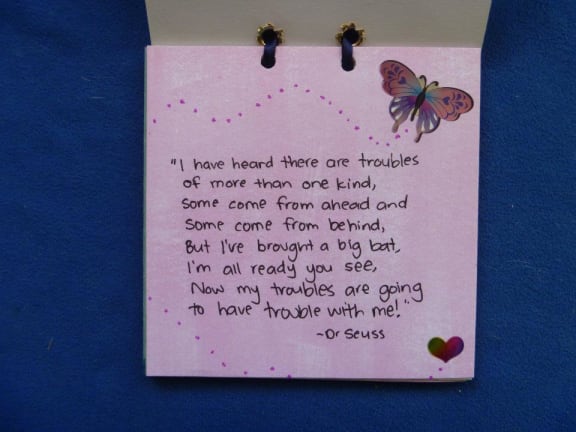 "I have heard there are troubles
of more than one kind,
some come from ahead and
some come from behind,
But I've brought a big bat,
I'm all ready you see,
Now my troubles are going
to have trouble with me!"
~Dr Seuss